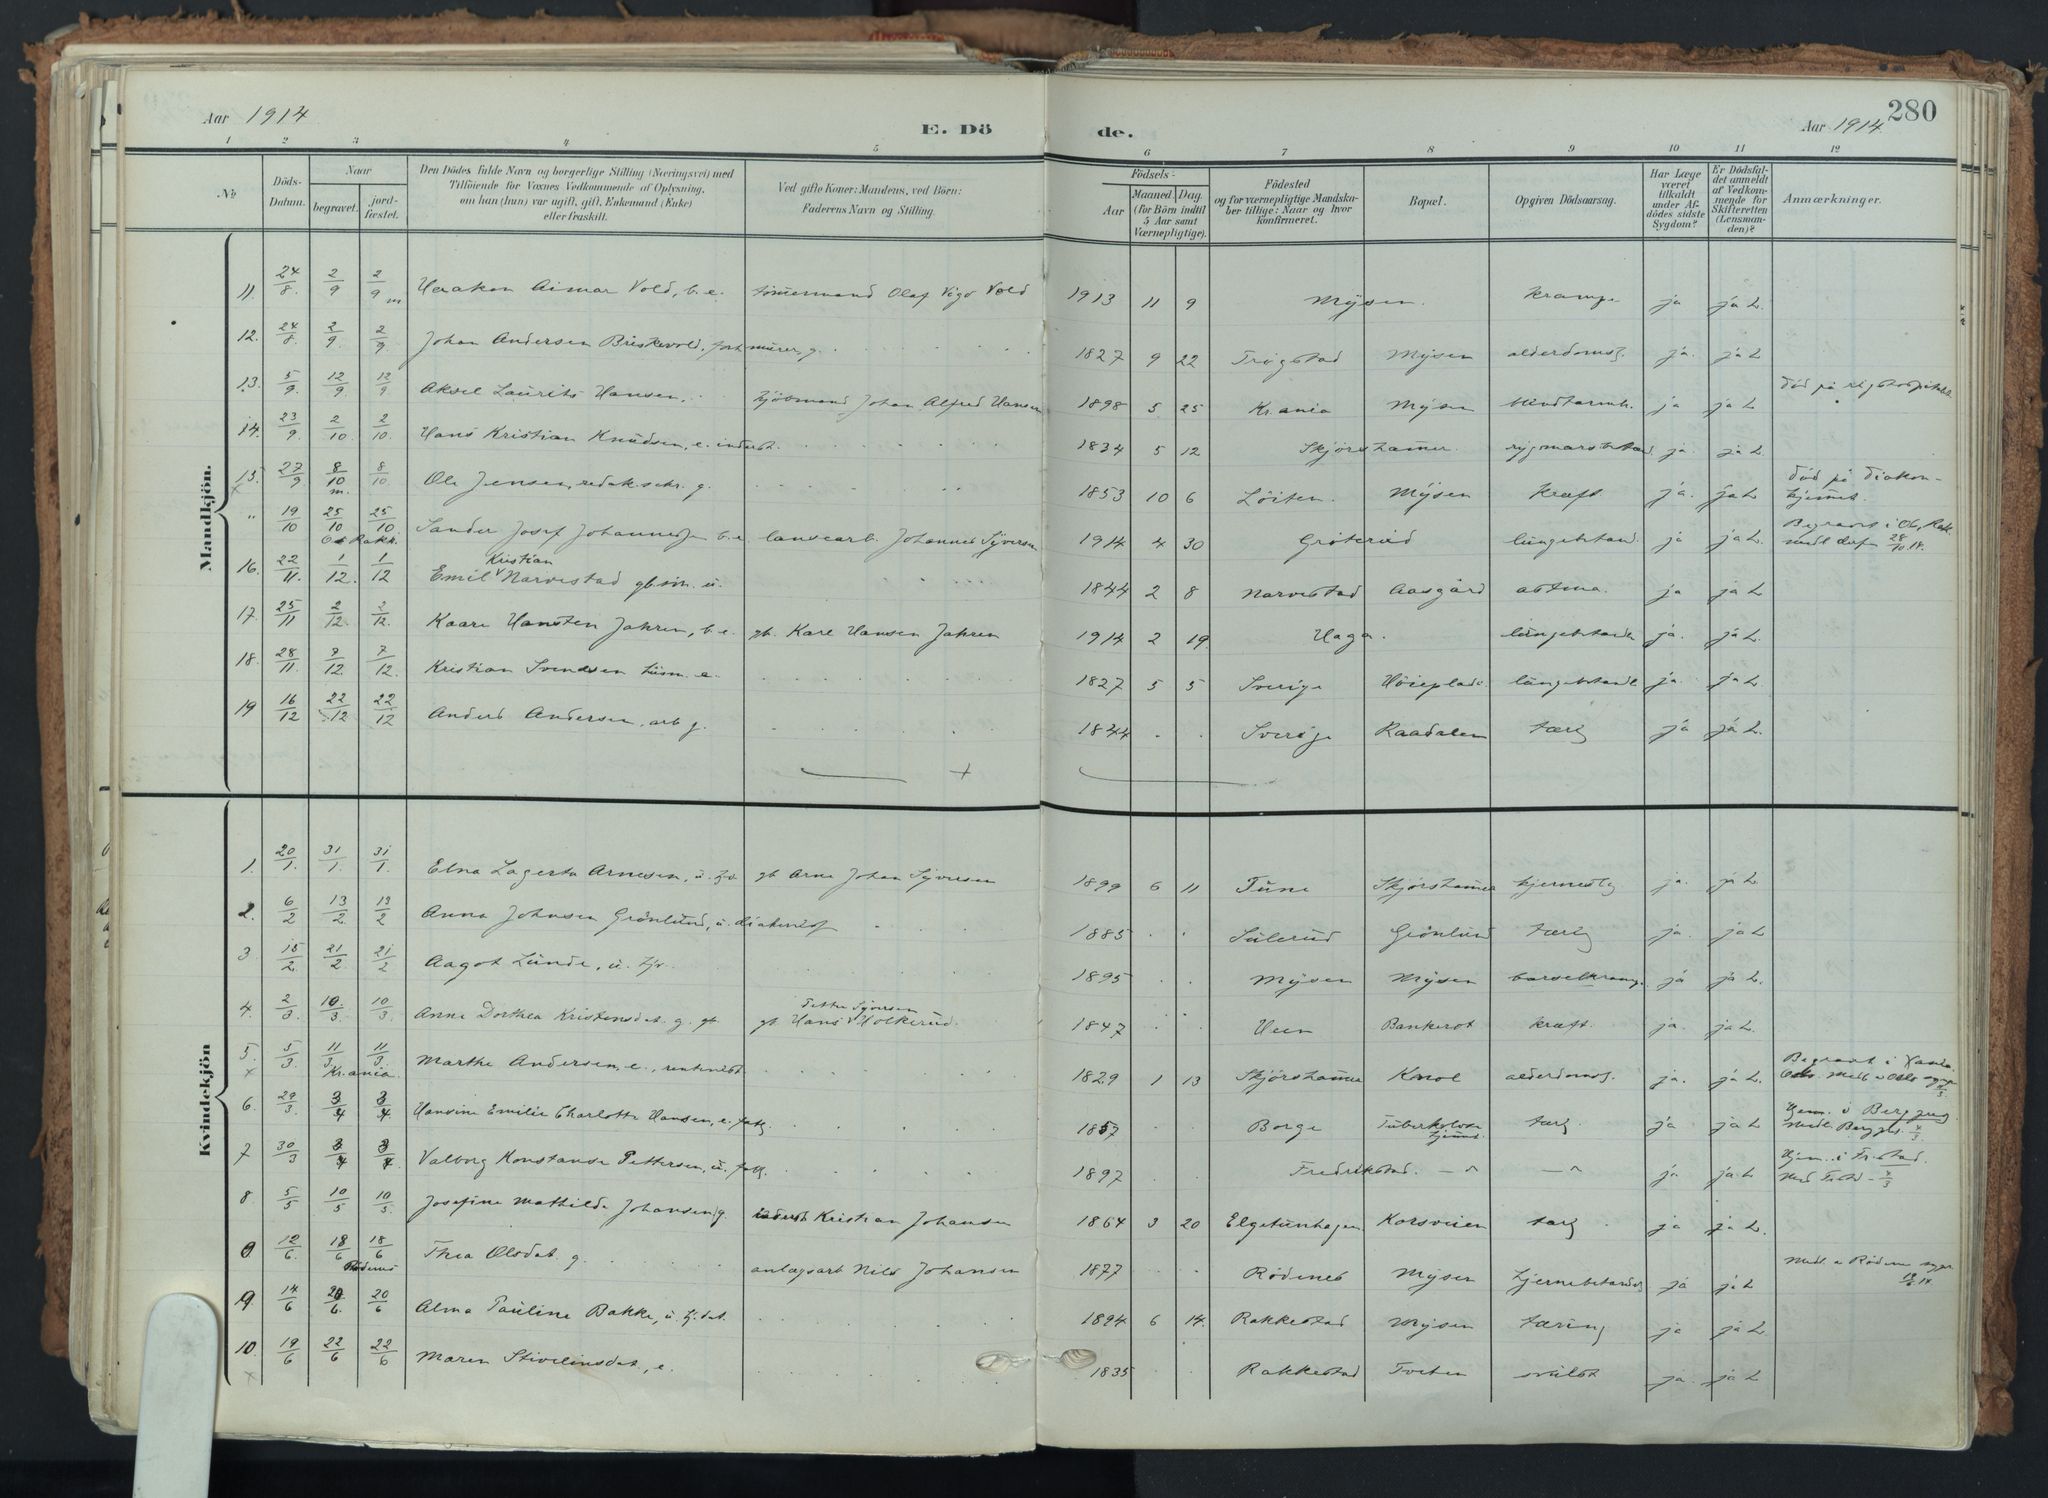 Aar 1914
E. Dö de.
Aar 1914
280
1 2 3 4 5 6 7 8 9 10 11 12
No
Döds-Datum.
Naar
begravet.
jord-fæstet.
Den Dödes fulde Navn og borgerlige Stilling (Næringsvei) med
Tilföiende for Voxnes Vedkommende af Oplysning,
om han (hun) var ugift, gift, Enkemand (Enke)
eller fraskilt.
Ved gifte Koner: Mandens, ved Börn:
Faderens Navn og Stilling.
Födsels-
Aar
Maaned. Dag.
(for Börn indtil
5 Aar samt
Værnepligtige).
Födested
og for værnepligtige Mandska-
ber tillige: Naar og hvor
konfirmeret.
Bopæl.
Opgiven Dödsaarsag.
Har Læge
været
tilkaldt
under Af-
dödes sidste
Sygdom?
Er Dödsfal-
det anmeldt
af Vedkom-
mende for
Skifteretten
(Lensman-
den)?
Anmærkninger.
Mandkjön.
11. 24/8 2/9 2/9 m Haakon Aimar Vold, b. e. tømermand Olaf Vigo Vold 1913 11 9 Mysen. krampe ja ja L.
12. 24/8. 2/9. 2/9 Johan Andersen Briskevold, murer, g. 1827 9 22 Trøgstad Mysen alderdoms. ja. ja L
13. 5/9 12/9. 12/9 Aksel Laurits Hansen, Johan Alfred Hansen 1898 5 25 Kr.ania Mysen blindtarmb. ja ja L død på rigshospitalet
14. 23/9 2/10. 2/10. Hans Kristian Knudsen, e. inderst. 1834 5 12 Skjørshamer. rygmarv ja. ja L
15 x 27/9 8/10 m. 8/10. Ole Jensen, redaktør. g. 1853 10 6 Løiten. Mysen kræft ja. ja L død på diakon-
hjemmet.
" 19/10 25/10 25/10 Rakk. Sander Josef Johannessen b. e. Johannes Syversen 1914 4 30 Grøterud lungebetænd. ja ja L. Begravet i Rakk.
16. 22/11. 1/12. 1/12 Emil Kristian Narvestad gb. søn. u. 1844 2 8 Narvestad Aasgård astma. ja ja L
17. 25/11 2/12. 2/12. Kaare Hansten Jahren, b. e. gb. Karl Hansen Jahren 1914 2 19. Haga. lungebetænd. ja. ja L.
18. 28/11. 7/12. 7/12. Kristian Svendsen husm. e. 1827 5 5 Sverige lungebetænd. ja. ja L.
19 16/12 22/12. 22/12 Anders Andersen, arb g. 1844 Sverige Raadalen tærg ja ja L.
Kvindekjön
1. 20/1. 31/1. 31/1. Elna Lagerta Arnesen, u. gb Arne Johan Syversen 1899 6 11 Tune Skjørshamer ja. ja L.
2. 6/2 13/2. 13/2 Anna Johnsen Grønlund, u. 1885 Sulerud Grønlund tærg ja. ja L
3 15/2. 21/2 21/2 Aagot Lunde, u. 1895 Mysen Mysen barselkramp. ja ja L.
4. 2/3. 10/3. 10/3. Anne Dorthea Kristensdat. g. gb. Hans Petter Syversen Holkerud. 1847 Heen Bankerot kræft. ja. ja L.
5. x 5/3 11/3 11/3. Kr.ania. Marthe Andersen, e., rentenist 1829 1 13 Skjørshamer Knol alderdoms. ja. ja L. Begravet i
6 29/3. 3/4 3/4 Hansine Emilie Charlotte Hansen, e. 1857 Borge Tuberkulose
hjemmet. tærg. ja ja L. Hjem. i Berg
7 30/3 3/4 3/4 Valborg Konstanse Pettersen, u. 1897 Fredrikstad. — " — " ja ja L Hjem. i Fr.stad.
8. 5/5 10/5 10/5. Josefine Mathilde Johansen g. inderst Kristian Johansen 1864 3 20 Elgetunhagen Korsveien tærg ja ja L.
0 12/6. 18/6 18/6 Rødenes Thea Olsdat. g. anlægsarb Nils Johansen 1877 Rødenes Mysen hjernebetænd. ja ja L
9. 14/6 20/6. 20/6 Alma Pauline Bakke, u. 1894 6 14. Rakkestad Mysen tæring ja ja L.
10. x 19/6 22/6 22/6 Maren Stivelinsdat, e. 1835 Rakkestad Tveten svulst ja. ja L.